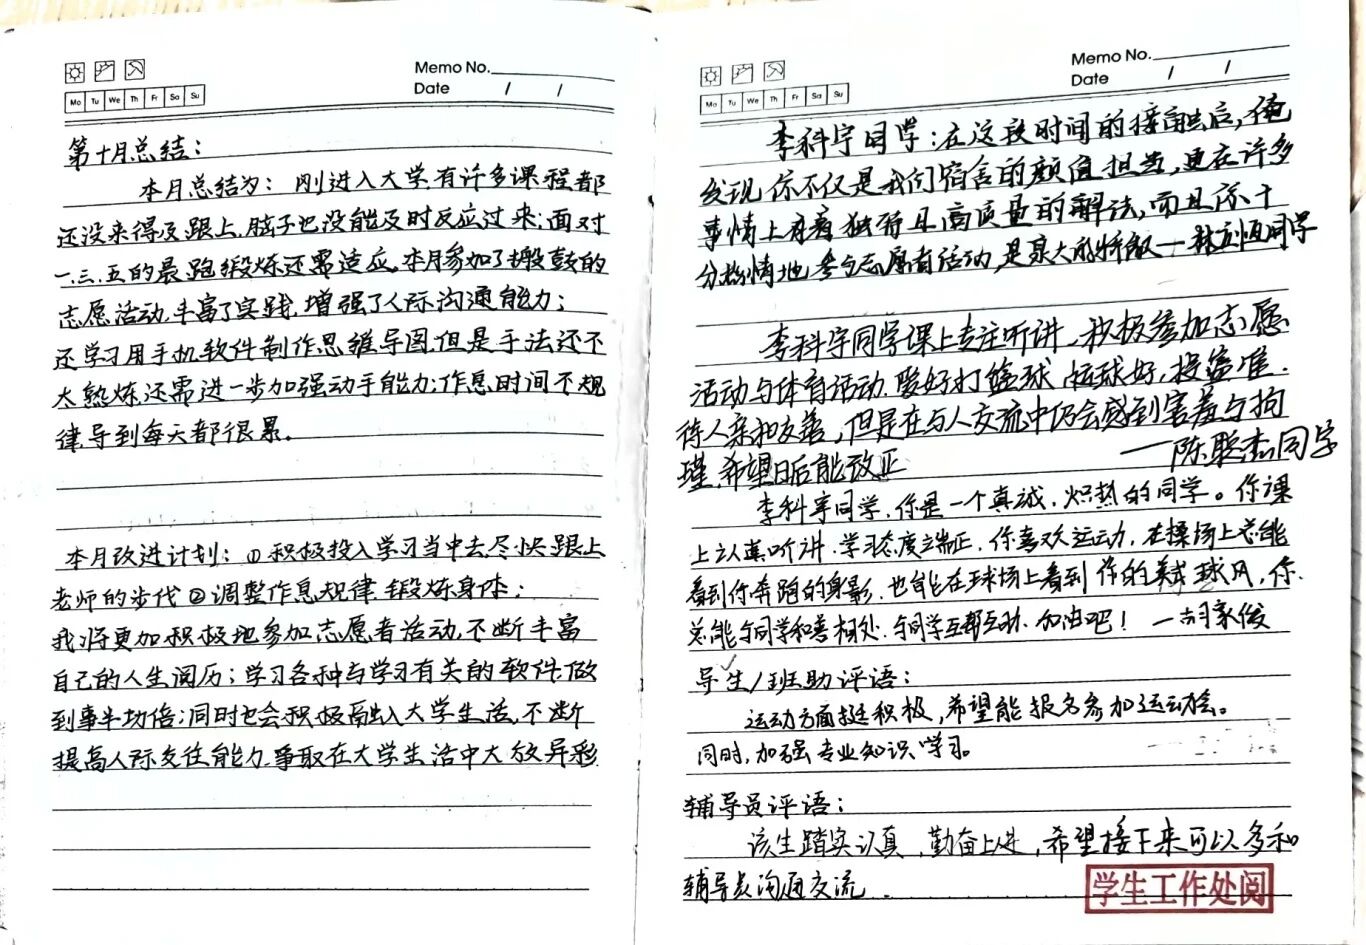 Memo No.
Date / /
Mo Tu We Th Fr Sa Su
第十月总结：
本月总结为：刚进入大学有许多课程都
还没来得及跟上，脑子也没能及时反应过来；面对
一、三、五的晨跑锻炼还需适应，本月参加了搬鼓的
志愿活动，丰富了实践，增强了人际沟通能力；
还学习用手机软件制作思维导图，但是手法还不
太熟炼还需进一步加强动手能力；作息时间不规
律导到每天都很累。
本月改进计划：①积极投入学习当中去，尽快跟上
老师的步伐②调整作息规律，锻炼身体；
我将更加积极地参加志愿者活动，不断丰富
自己的人生阅历；学习各种与学习有关的软件，做
到事半功倍；同时也会积极融入大学生活，不断
提高人际交往能力，争取在大学生活中大放异彩
Memo No.
Date / /
Mo Tu We Th Fr Sa Su
李科宇同学：在这段时间的接触后，俺
发现你不仅是我们宿舍的颜值担当，更在许多
事情上有着独特且高质量的解法，而且你十
分热情地参与志愿者活动，是泉大的骄傲——林立恒同学
李科宇同学课上专注听讲，积极参加志愿
活动与体育活动，爱好打篮球，运球好，投篮准，
待人亲和友善，但是在与人交流中仍会感到害羞与拘
瑾，希望日后能改正
——陈聪杰同学
李科宇同学，你是一个真诚，炽热的同学。你课
上认真听讲，学习态度端正，你喜欢运动，在操场上总能
看到你奔跑的身影，也能在球场上看到你的球风，你
总能与同学和善相处，与同学互帮互助，加油吧！ —家俊
导生/班助评语：
运动方面挺积极，希望能报名参加运动会。
同时，加强专业知识学习。
辅导员评语：
该生踏实认真，勤奋上进，希望接下来可以多和
辅导员沟通交流．
学生工作处阅